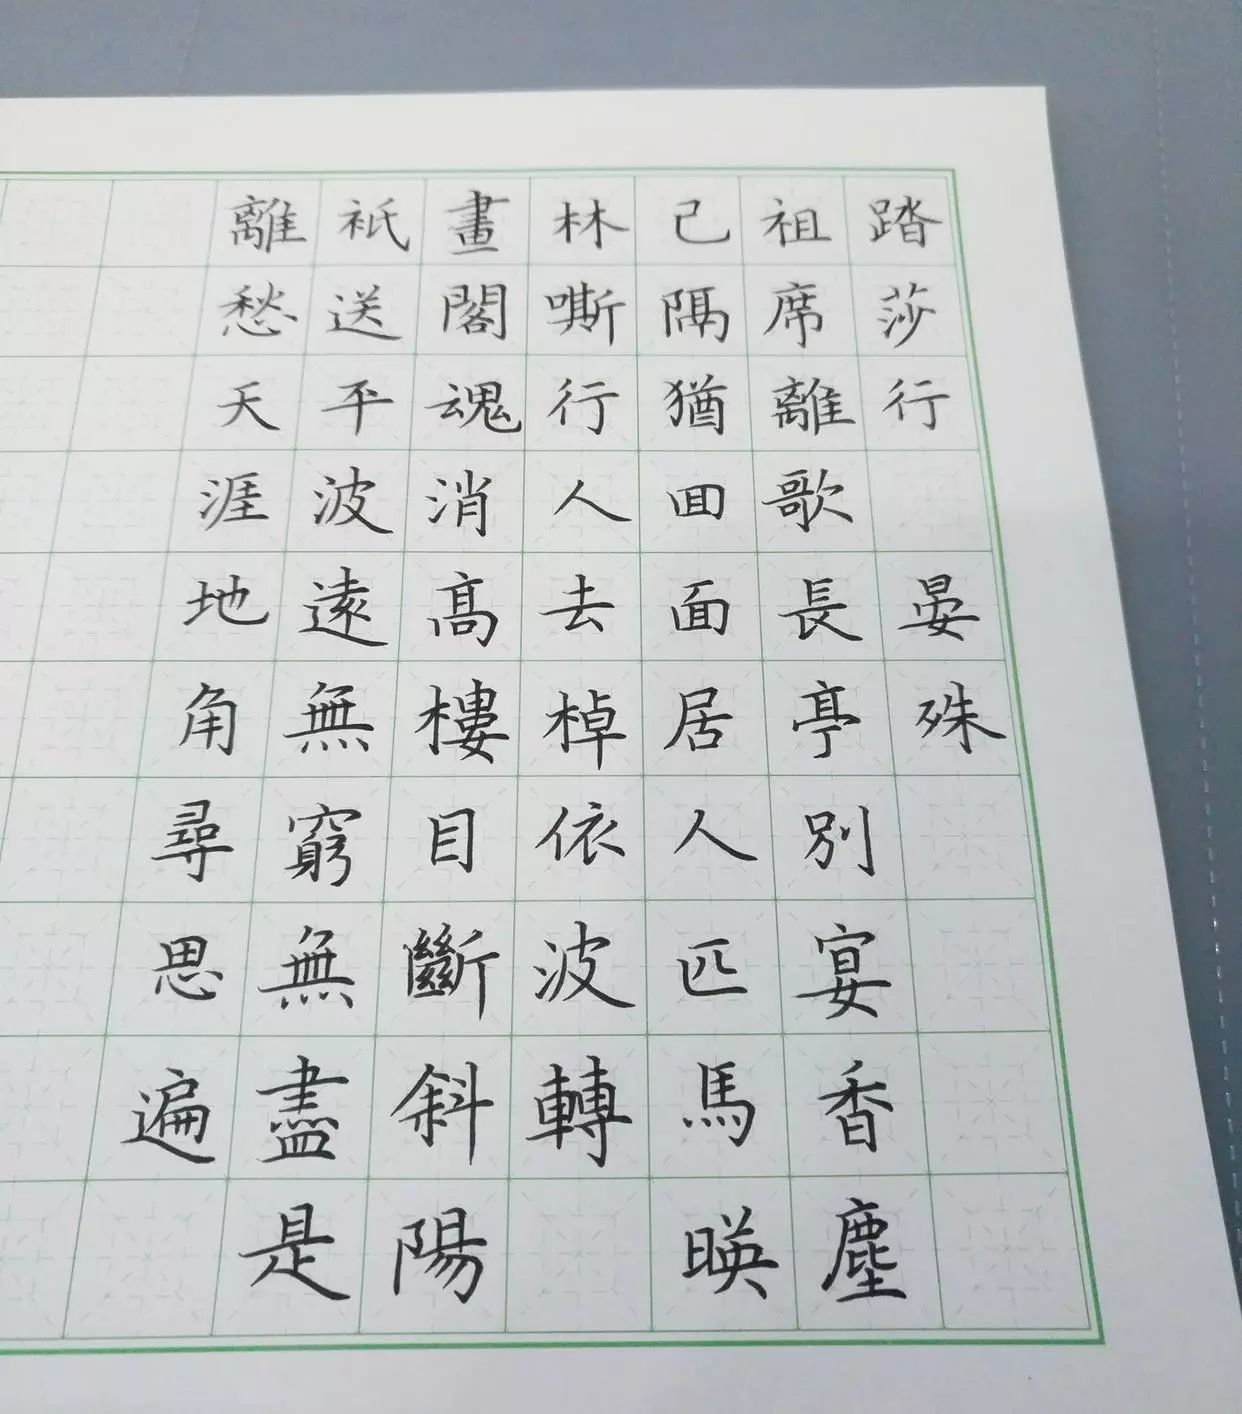 踏莎行　晏殊
祖席離歌長亭別宴香塵
已隔猶回面居人匹馬映
林嘶行人去棹依波轉
畫閣魂消高樓目斷斜陽
衹送平波遠無窮無盡是
離愁天涯地角尋思遍